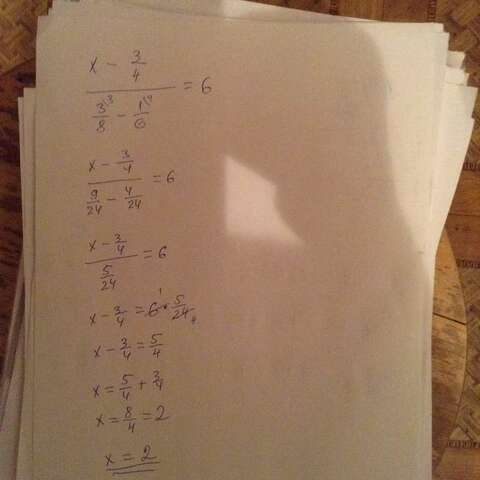 (x - 3/4) / (3/8 \3 - 1/6 \4) = 6
(x - 3/4) / (9/24 - 4/24) = 6
(x - 3/4) / (5/24) = 6
x - 3/4 = 6 1 · 5/24 4
x - 3/4 = 5/4
x = 5/4 + 3/4
x = 8/4 = 2
x = 2